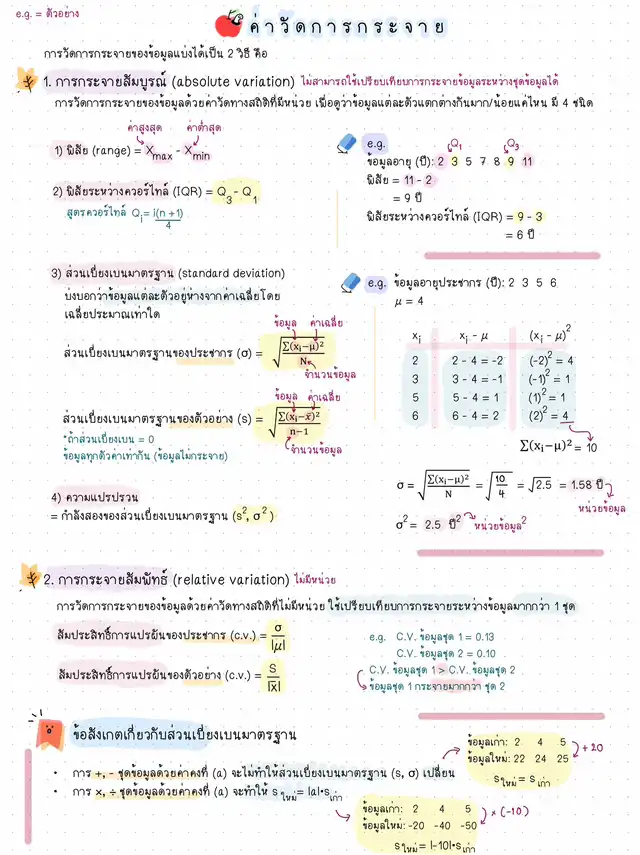 e.g. = ตัวอย่าง
ค่าวัดการกระจาย
การวัดการกระจายของข้อมูลแบ่งได้เป็น 2 วิธี คือ
1. การกระจายสัมบูรณ์ (absolute variation) ไม่สามารถใช้เปรียบเทียบการกระจายข้อมูลระหว่างชุดข้อมูลได้
การวัดการกระจายของข้อมูลด้วยค่าวัดทางสถิติที่มีหน่วย เพื่อดูว่าข้อมูลแต่ละตัวแตกต่างกันมาก/น้อยแค่ไหน มี 4 ชนิด
ค่าสูงสุด ค่าต่ำสุด
1) พิสัย (range) = Xmax - Xmin
2) พิสัยระหว่างควอร์ไทล์ (IQR) = Q3 - Q1
สูตรควอร์ไทล์ Qi = i(n+1)/4
e.g.
Q1 Q3
ข้อมูลอายุ (ปี): 2 3 5 7 8 9 11
พิสัย = 11 - 2
= 9 ปี
พิสัยระหว่างควอร์ไทล์ (IQR) = 9 - 3
= 6 ปี
3) ส่วนเบี่ยงเบนมาตรฐาน (standard deviation)
บ่งบอกว่าข้อมูลแต่ละตัวอยู่ห่างจากค่าเฉลี่ยโดย
เฉลี่ยประมาณเท่าใด
ข้อมูล ค่าเฉลี่ย
ส่วนเบี่ยงเบนมาตรฐานของประชากร (σ) = √(Σ(xi-μ)²/N)
จำนวนข้อมูล
ข้อมูล ค่าเฉลี่ย
ส่วนเบี่ยงเบนมาตรฐานของตัวอย่าง (s) = √(Σ(xi-x̄)²/n-1)
จำนวนข้อมูล
*ถ้าส่วนเบี่ยงเบน = 0
ข้อมูลทุกตัวค่าเท่ากัน (ข้อมูลไม่กระจาย)
4) ความแปรปรวน
= กำลังสองของส่วนเบี่ยงเบนมาตรฐาน (s², σ²)
e.g. ข้อมูลอายุประชากร (ปี): 2 3 5 6
μ = 4
xi xi - μ (xi - μ)²
2 2 - 4 = -2 (-2)² = 4
3 3 - 4 = -1 (-1)² = 1
5 5 - 4 = 1 (1)² = 1
6 6 - 4 = 2 (2)² = 4
Σ(xi-μ)² = 10
σ = √(Σ(xi-μ)²/N) = √(10/4) = √2.5 = 1.58 ปี
หน่วยข้อมูล
σ² = 2.5 ปี² หน่วยข้อมูล²
2. การกระจายสัมพัทธ์ (relative variation) ไม่มีหน่วย
การวัดการกระจายของข้อมูลด้วยค่าวัดทางสถิติที่ไม่มีหน่วย ใช้เปรียบเทียบการกระจายระหว่างข้อมูลมากกว่า 1 ชุด
สัมประสิทธิ์การแปรผันของประชากร (c.v.) = σ/|μ|
สัมประสิทธิ์การแปรผันของตัวอย่าง (c.v.) = S/|x̄|
e.g. C.V. ข้อมูลชุด 1 = 0.13
C.V. ข้อมูลชุด 2 = 0.10
C.V. ข้อมูลชุด 1 > C.V. ข้อมูลชุด 2
ข้อมูลชุด 1 กระจายมากกว่า ชุด 2
ข้อสังเกตเกี่ยวกับส่วนเบี่ยงเบนมาตรฐาน
ข้อมูลเก่า: 2 4 5
ข้อมูลใหม่: 22 24 25
+20
sใหม่ = sเก่า
• การ +, - ชุดข้อมูลด้วยค่าคงที่ (a) จะไม่ทำให้ส่วนเบี่ยงเบนมาตรฐาน (s, σ) เปลี่ยน
• การ x, ÷ ชุดข้อมูลด้วยค่าคงที่ (a) จะทำให้ sใหม่ = |a|•sเก่า
ข้อมูลเก่า: 2 4 5
ข้อมูลใหม่: -20 -40 -50
x (-10)
sใหม่ = |-10|•sเก่า